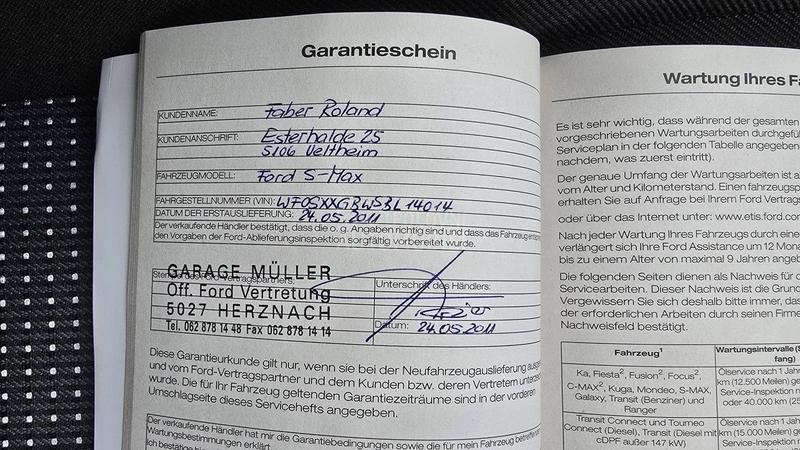 Garantieschein
KUNDENNAME: Faber Roland
KUNDENANSCHRIFT: Esterhalde 25
5106 Veltheim
FAHRZEUGMODELL: Ford S-Max
FAHRGESTELLNUMMER (VIN): WF0SXXGBWSBL14014
DATUM DER ERSTAUSLIEFERUNG: 24.05.2011
Der verkaufende Händler bestätigt, dass die o. g. Angaben richtig sind und dass das Fahrzeug
den Vorgaben der Ford-Ablieferungsinspektion sorgfältig vorbereitet wurde.
GARAGE MÜLLER
Off. Ford Vertretung
5027 HERZNACH
Tel. 062 878 14 48 Fax 062 878 14 14
Unterschrift des Händlers:
Datum: 24.05.2011
Diese Garantieurkunde gilt nur, wenn sie bei der Neufahrzeugauslieferung
und vom Ford-Vertragspartner und dem Kunden bzw. deren Vertretern
wurde. Die für Ihr Fahrzeug geltenden Garantiezeiträume sind in der vorderen
Umschlagseite dieses Serviceheftes angegeben.
Der verkaufende Händler hat mir die Garantiebedingungen sowie die für mein Fahrzeug
Wartungsbestimmungen erklärt
Ich bestätige
Wartung Ihres
Es ist sehr wichtig, dass während der gesamten
vorgeschriebenen Wartungsarbeiten
Serviceplan in der folgenden Tabelle
nachdem, was zuerst eintritt).
Der genaue Umfang der Wartungsarbeiten ist
vom Alter und Kilometerstand. Einen
erhalten Sie auf Anfrage bei Ihrem Ford
oder über das Internet unter: www.etis.ford.com
Nach jeder Wartung Ihres Fahrzeugs durch
verlängert sich Ihre Ford Assistance um 12
bis zu einem Alter von maximal 9 Jahren
Die folgenden Seiten dienen als Nachweis für
Servicearbeiten. Dieser Nachweis ist die
Vergewissern Sie sich deshalb bitte immer,
der erforderlichen Arbeiten durch seinen
Nachweisfeld bestätigt.
Fahrzeug¹ Wartungsintervalle
fang)
Ka, Fiesta², Fusion², Focus²,
C-MAX², Kuga, Mondeo, S-MAX,
Galaxy, Transit (Benziner) und
Ranger
Ölservice nach 1
km (12.500 Meilen)
Service-Inspektion
oder 40.000 km
Transit Connect und Tourneo
Connect (Diesel), Transit (Diesel mit
cDPF außer 147 kW)
Ölservice nach 1
km (15.000 Meilen)
Service-Inspektion